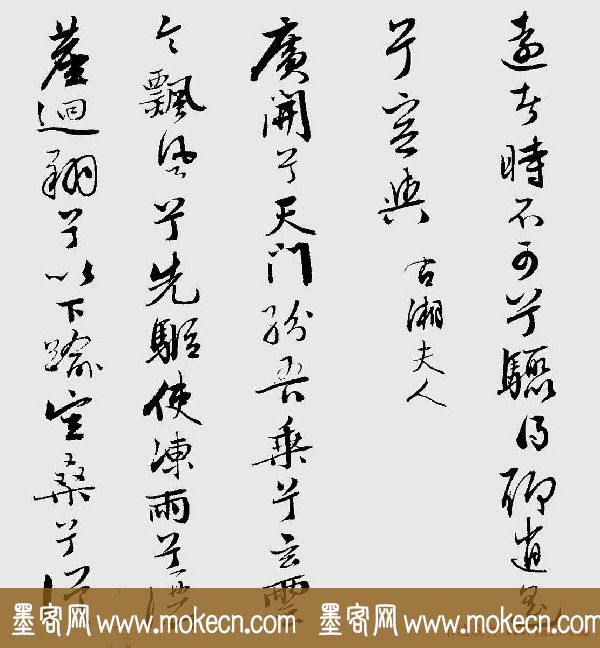 遠者時不可兮驟得聊逍遙
兮容與 右湘夫人
廣開兮天門紛吾乘兮玄雲
令飄風兮先驅使凍雨兮灑
塵迴翔兮以下踰空桑兮從
墨客网 www.mokecn.com 墨客网 www.mokecn.com